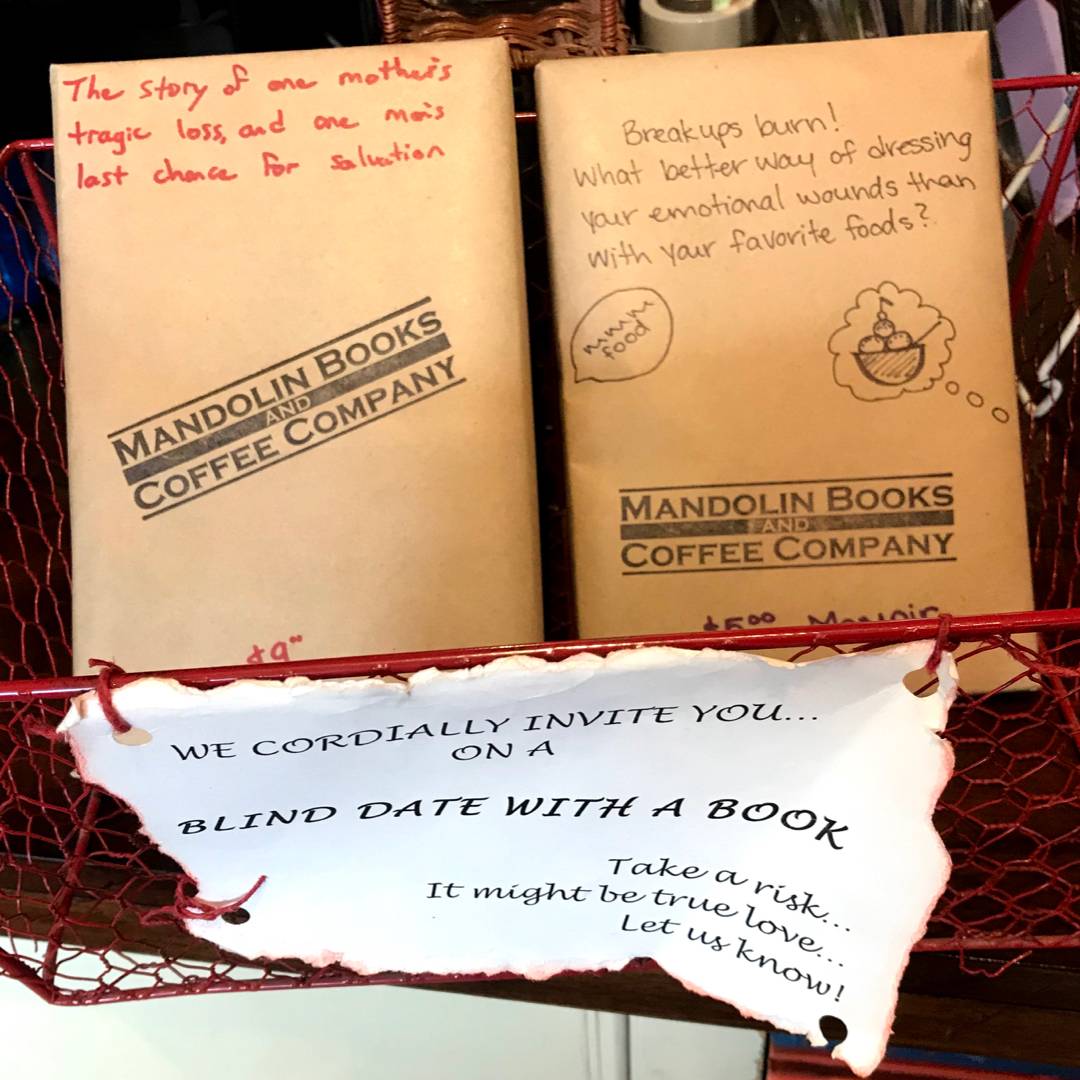 The story of one mother's
tragic loss, and one man's
last chance for salvation
MANDOLIN BOOKS
AND
COFFEE COMPANY
$9⁰⁰
Breakups burn!
What better way of dressing
your emotional wounds than
with your favorite foods?
mmm
food
MANDOLIN BOOKS
AND
COFFEE COMPANY
$5⁰⁰ Memoir
WE CORDIALLY INVITE YOU...
ON A
BLIND DATE WITH A BOOK
Take a risk...
It might be true love...
Let us know!